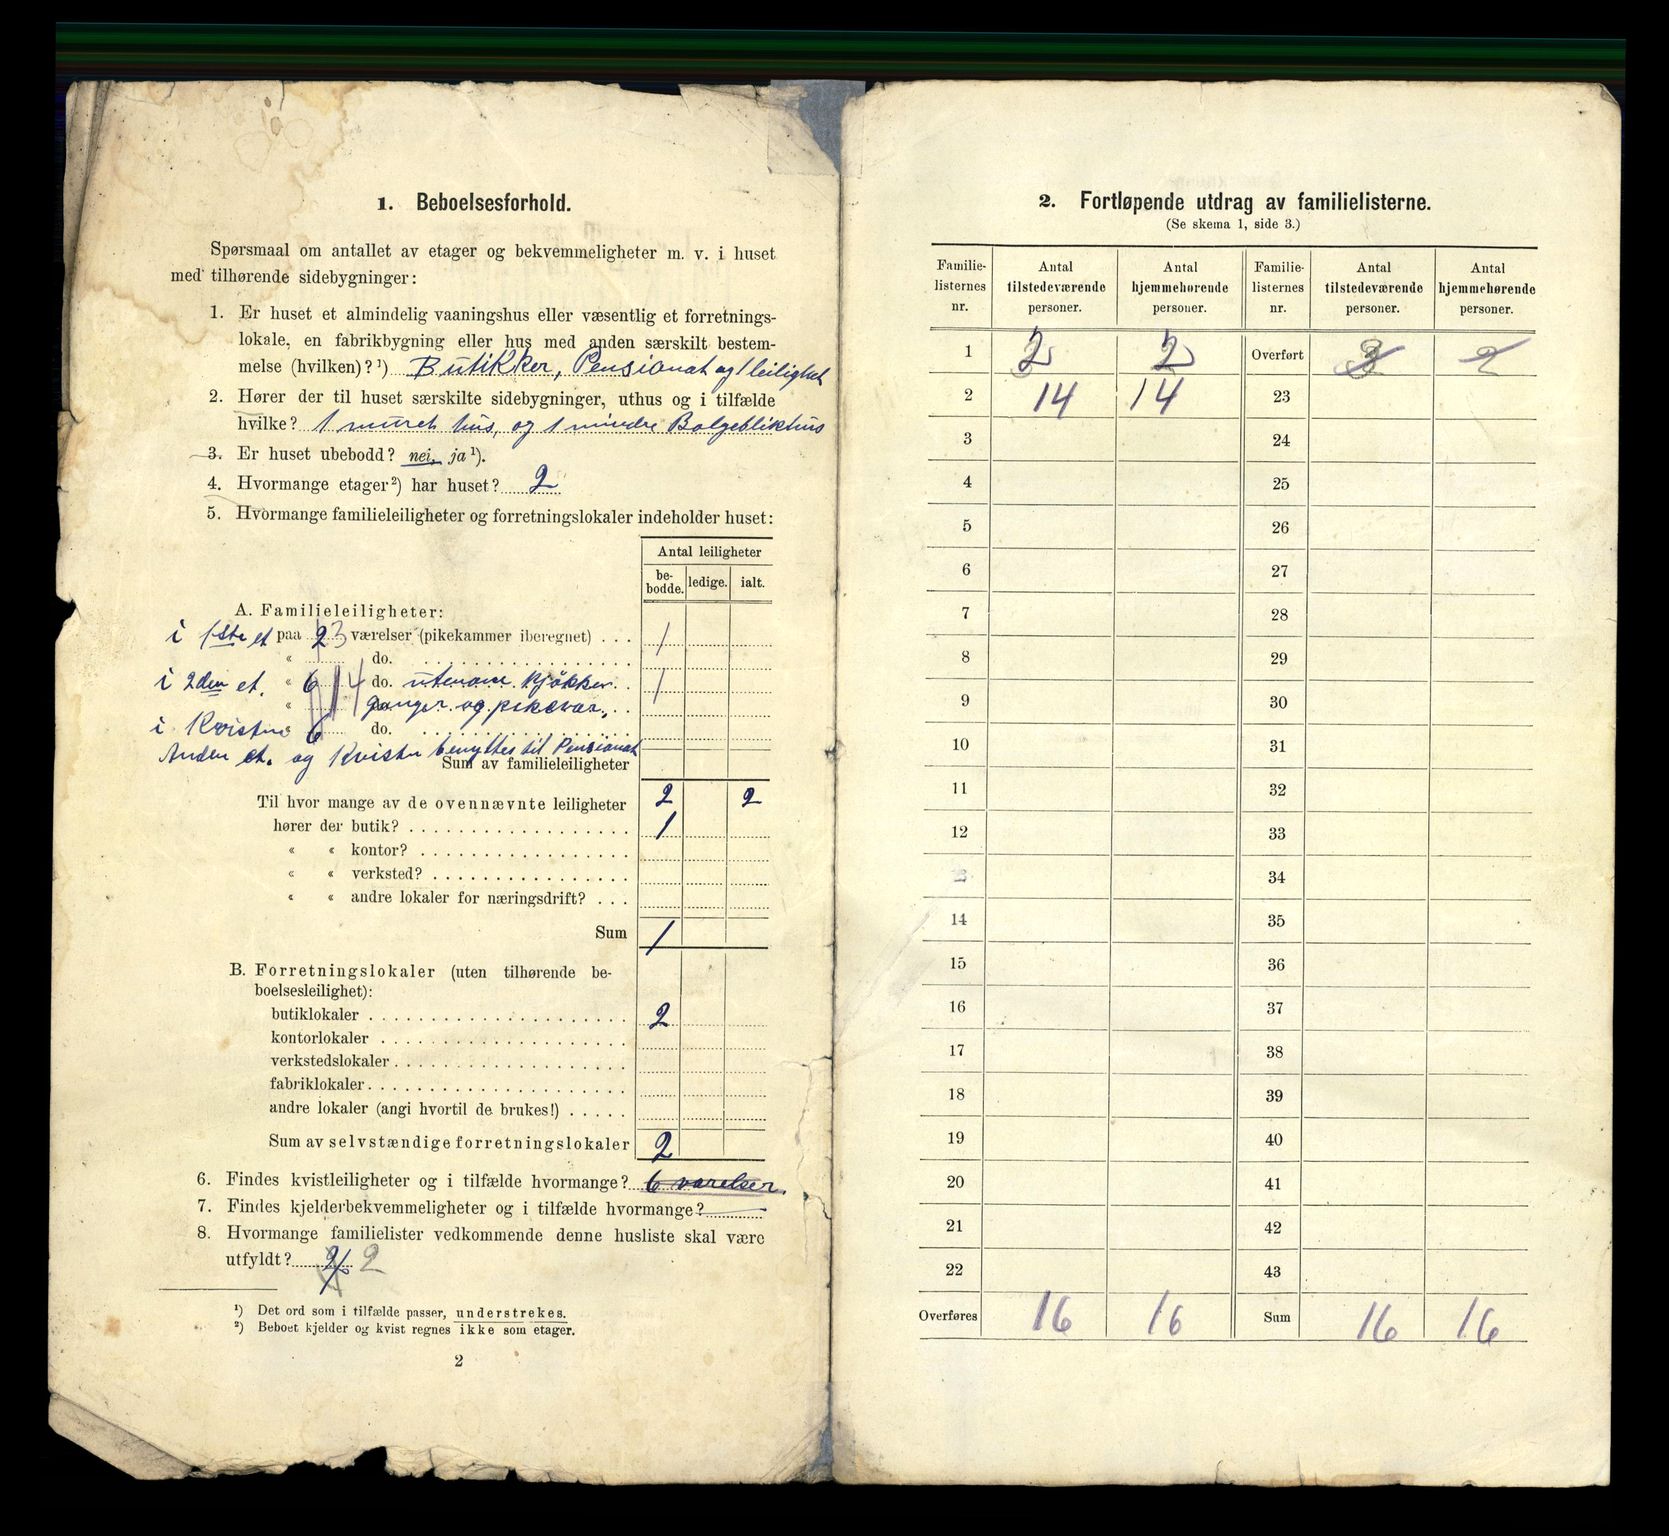 1. Beboelsesforhold.
Spørsmaal om antallet av etager og bekvemmeligheter m. v. i huset
med tilhørende sidebygninger:
1. Er huset et almindelig vaaningshus eller væsentlig et forretnings-
lokale, en fabrikbygning eller hus med anden særskilt bestem-
melse (hvilken)?¹) Butikker, Pensionat og 1 leilighet
2. Hører der til huset særskilte sidebygninger, uthus og i tilfælde
hvilke? 1 muret hus, og 1 mindre Bolgeblikthus
3. Er huset ubebodd? nei, ja¹).
4. Hvormange etager²) har huset? 2
5. Hvormange familieleiligheter og forretningslokaler indeholder huset:
Antal leiligheter
be-
bodde. ledige. ialt.
A. Familieleiligheter:
i 1ste et paa 2 3 værelser (pikekammer iberegnet) . . . 1
« do.
i 2den et. « 6 14 do. utenom kjøkken 1
« do. ganger og pikevær.
i Kvisten « 6 do.
Anden et. og Kvisten benyttes til Pensionat
Sum av familieleiligheter
Til hvor mange av de ovennævnte leiligheter 2 2
hører der butik? 1
« « kontor?
« « verksted?
« « andre lokaler for næringsdrift?
Sum 1
B. Forretningslokaler (uten tilhørende be-
boelsesleilighet):
butiklokaler 2
kontorlokaler
verkstedslokaler
fabriklokaler
andre lokaler (angi hvortil de brukes!)
Sum av selvstændige forretningslokaler 2
6. Findes kvistleiligheter og i tilfælde hvormange? 6 værelser.
7. Findes kjelderbekvemmeligheter og i tilfælde hvormange? —
8. Hvormange familielister vedkommende denne husliste skal være
utfyldt? 2 2
¹) Det ord som i tilfælde passer, understrekes.
²) Beboet kjelder og kvist regnes ikke som etager.
2
2. Fortløpende utdrag av familielisterne.
(Se skema 1, side 3.)
Familie-
listernes
nr. Antal
tilstedeværende
personer. Antal
hjemmehørende
personer. Familie-
listernes
nr. Antal
tilstedeværende
personer. Antal
hjemmehørende
personer.
1 2 2 Overført 2
2 14 14 23
3 24
4 25
5 26
6 27
7 28
8 29
9 30
10 31
11 32
12 33
34
14 35
15 36
16 37
17 38
18 39
19 40
20 41
21 42
22 43
Overføres 16 16 Sum 16 16